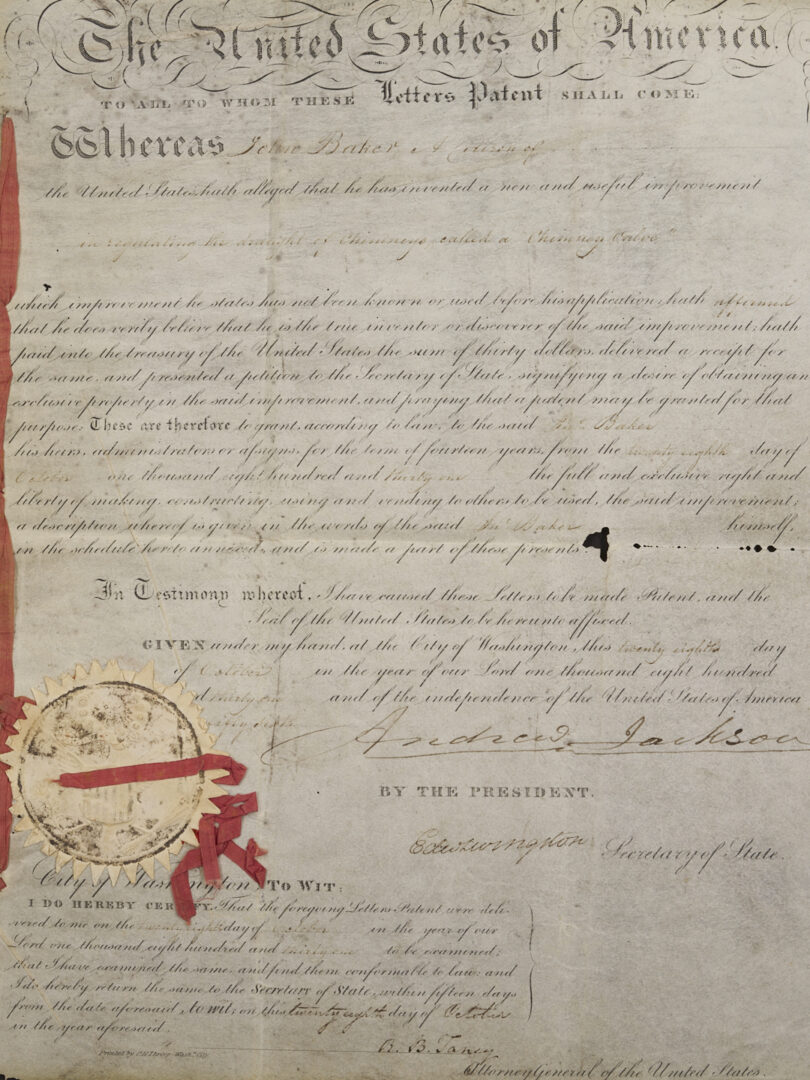 The United States of America.
TO ALL TO WHOM THESE Letters Patent SHALL COME:
Whereas John Baker A Citizen of
the United States, hath alleged that he has invented a new and useful improvement
in regulating the draught of Chimneys called a "Chimney Valve"
which improvement he states has not been known or used before his application, hath affirmed
that he does verily believe that he is the true inventor or discoverer of the said improvement, hath
paid into the treasury of the United States the sum of thirty dollars, delivered a receipt for
the same, and presented a petition to the Secretary of State, signifying a desire of obtaining an
exclusive property in the said improvement, and praying that a patent may be granted for that
purpose: These are therefore to grant, according to law, to the said Jno. Baker
his heirs, administrators or assigns, for the term of fourteen years, from the twenty eighth day of
October one thousand eight hundred and thirty one the full and exclusive right and
liberty of making, constructing, using and vending to others to be used, the said improvement;
a description whereof is given in the words of the said Jno. Baker himself,
in the schedule hereto annexed, and is made a part of these presents.
In Testimony whereof, I have caused these Letters to be made Patent, and the
Seal of the United States to be hereunto affixed.
GIVEN under my hand, at the City of Washington, this twenty eighth day
of October in the year of our Lord one thousand eight hundred
thirty one and of the independence of the United States of America
fifty sixth
Andrew Jackson
BY THE PRESIDENT.
Edw Livingston Secretary of State.
City of Washington, TO WIT:
I DO HEREBY CERTIFY, That the foregoing Letters Patent were deli-
vered to me on the twenty eighth day of October in the year of our
Lord one thousand eight hundred and thirty one to be examined;
that I have examined the same, and find them conformable to law; and
I do hereby return the same to the Secretary of State, within fifteen days
from the date aforesaid, to wit: on this twenty eighth day of October
in the year aforesaid.
R. B. Taney
Attorney General of the United States.